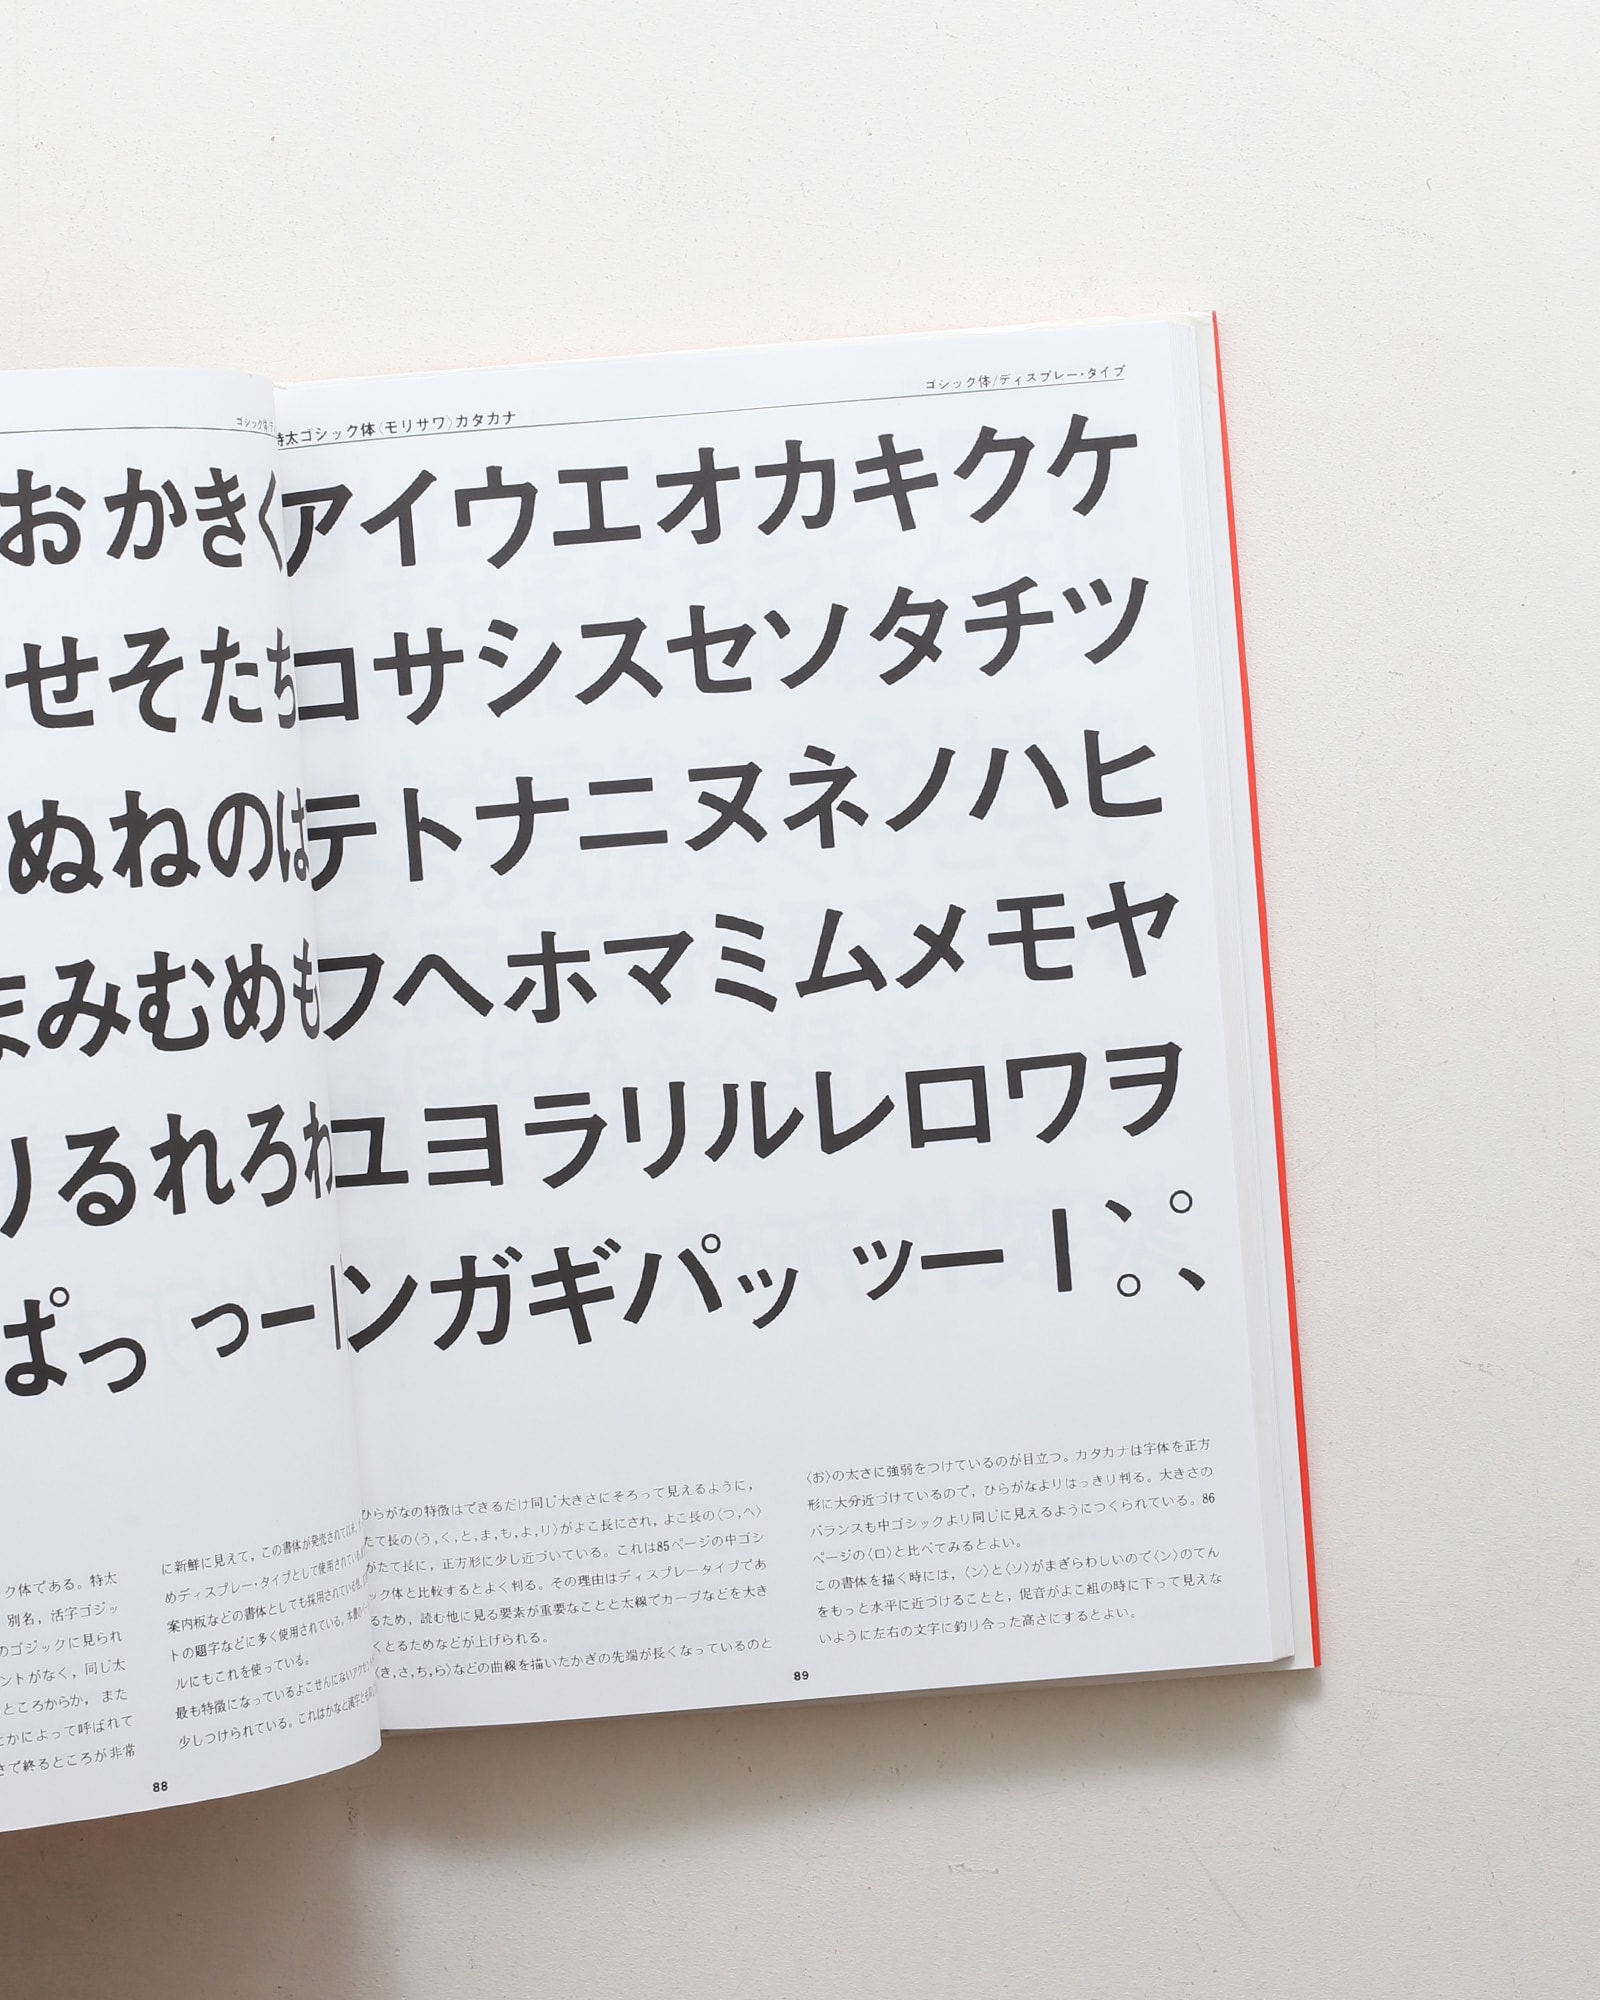 ゴシック体/ディ
おかきく
せそたち
ぬねのは
まみむめも
りるれろわ
ぱっ っー｜
ク体である。特太
別名，活字ゴジッ
のゴジックに見られ
ントがなく，同じ太
ところからか，また
とかによって呼ばれて
さで終るところが非常
に新鮮に見えて，この書体が発売されて以来，
めディスプレー・タイプとして使用されている。
案内板などの書体としても採用されている他，
トの題字などに多く使用されている。本書の
ルにもこれを使っている。
最も特徴になっているよこせんにないアクセン
少しつけられている。これはかなと漢字とも
88
特太ゴシック体〈モリサワ〉カタカナ
ゴシック体/ディスプレー・タイプ
アイウエオカキクケ
コサシスセソタチツ
テトナニヌネノハヒ
フヘホマミムメモヤ
ユヨラリルレロワヲ
ンガギパッ ッー｜、。
。、
ひらがなの特徴はできるだけ同じ大きさにそろって見えるように，
たて長の〈う,く,と,ま,も,よ,り〉がよこ長にされ，よこ長の〈つ,へ〉
がたて長に，正方形に少し近づいている。これは85ページの中ゴシ
ック体と比較するとよく判る。その理由はディスプレータイプであ
るため，読む他に見る要素が重要なことと太線でカーブなどを大き
くとるためなどが上げられる。
〈き,さ,ち,ら〉などの曲線を描いたかぎの先端が長くなっているのと
〈お〉の太さに強弱をつけているのが目立つ。カタカナは字体を正方
形に大分近づけているので，ひらがなよりはっきり判る。大きさの
バランスも中ゴシックより同じに見えるようにつくられている。86
ページの〈ロ〉と比べてみるとよい。
この書体を描く時には，〈ン〉と〈ソ〉がまぎらわしいので〈ン〉のてん
をもっと水平に近づけることと，促音がよこ組の時に下って見えな
いように左右の文字に釣り合った高さにするとよい。
89